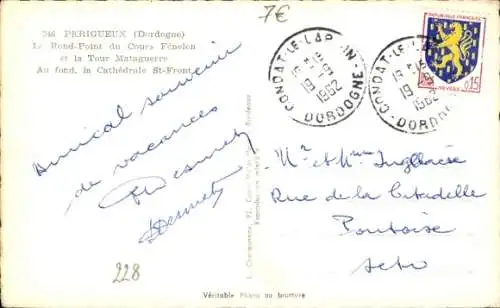 7€
246 PERIGUEUX (Dordogne)
Le Rond-Point du Cours Fénelon
et la Tour Mataguerre
Au fond, la Cathédrale St-Front
Amical souvenir
de vacances
228
CONDAT-LE-LARDIN
19
1962
DORDOGNE
CONDAT-LE-
19
1962
DORDOGNE
REPUBLIQUE FRANÇAISE
0,15
Mr et Mme
Rue de la Citadelle
Pontoise
Véritable Photo au bromure